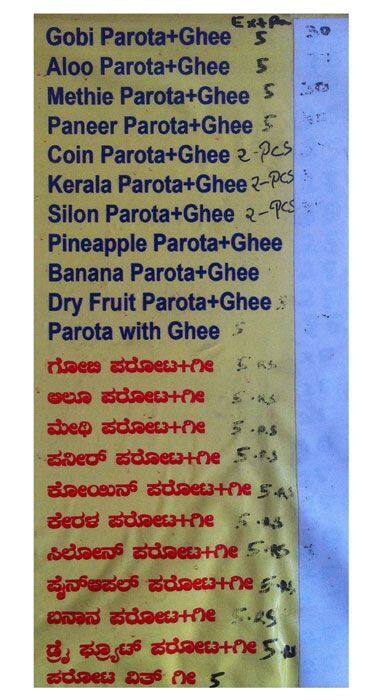 Extra
Gobi Parota+Ghee 5 30
Aloo Parota+Ghee 5
Methie Parota+Ghee 5 30
Paneer Parota+Ghee 5
Coin Parota+Ghee 2-PCS
Kerala Parota+Ghee 2-PCS
Silon Parota+Ghee 2-PCS
Pineapple Parota+Ghee
Banana Parota+Ghee
Dry Fruit Parota+Ghee 5
Parota with Ghee 5
ಗೋಬಿ ಪರೋಟ+ಗೀ 5 RS
ಆಲೂ ಪರೋಟ+ಗೀ 5.RS
ಮೇಥಿ ಪರೋಟ+ಗೀ 5.RS
ಪನೀರ್ ಪರೋಟ+ಗೀ 5.RS
ಕೋಯಿನ್ ಪರೋಟ+ಗೀ 5.RS
ಕೇರಳ ಪರೋಟ+ಗೀ 5.RS
ಸಿಲೋನ್ ಪರೋಟ+ಗೀ 5.RS
ಪೈನ್ಆಪಲ್ ಪರೋಟ+ಗೀ 5.RS
ಬನಾನ ಪರೋಟ+ಗೀ 5.RS
ಡ್ರೈ ಫ್ರೂಟ್ ಪರೋಟ+ಗೀ 5.RS
ಪರೋಟ ವಿತ್ ಗೀ 5